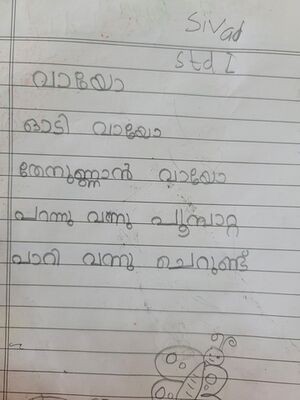 Sivad
Std I
വായോ
ഓടി വായോ
തേനുണ്ണാൻ വായോ
പറന്നു വന്നു പൂമ്പാറ്റ
പാറി വന്നു ചെറുണ്ട്